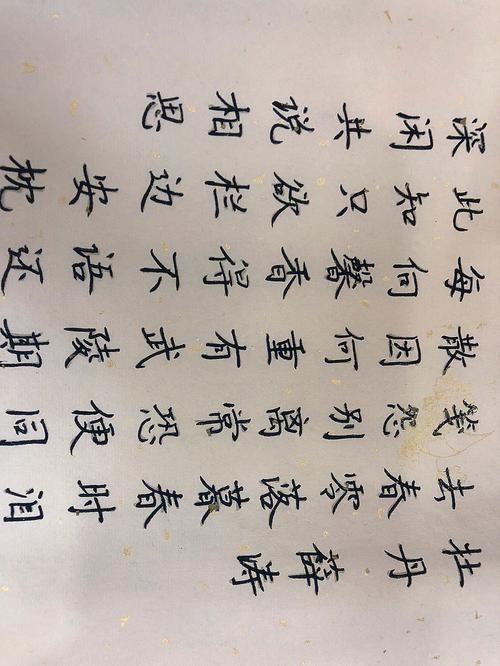 牡丹 薛涛
去春零落暮春时泪
笺怨别离常恐便同
散因何重有武陵期
每向馨香得不语还
此知只欲栏边安枕
深闲共说相思